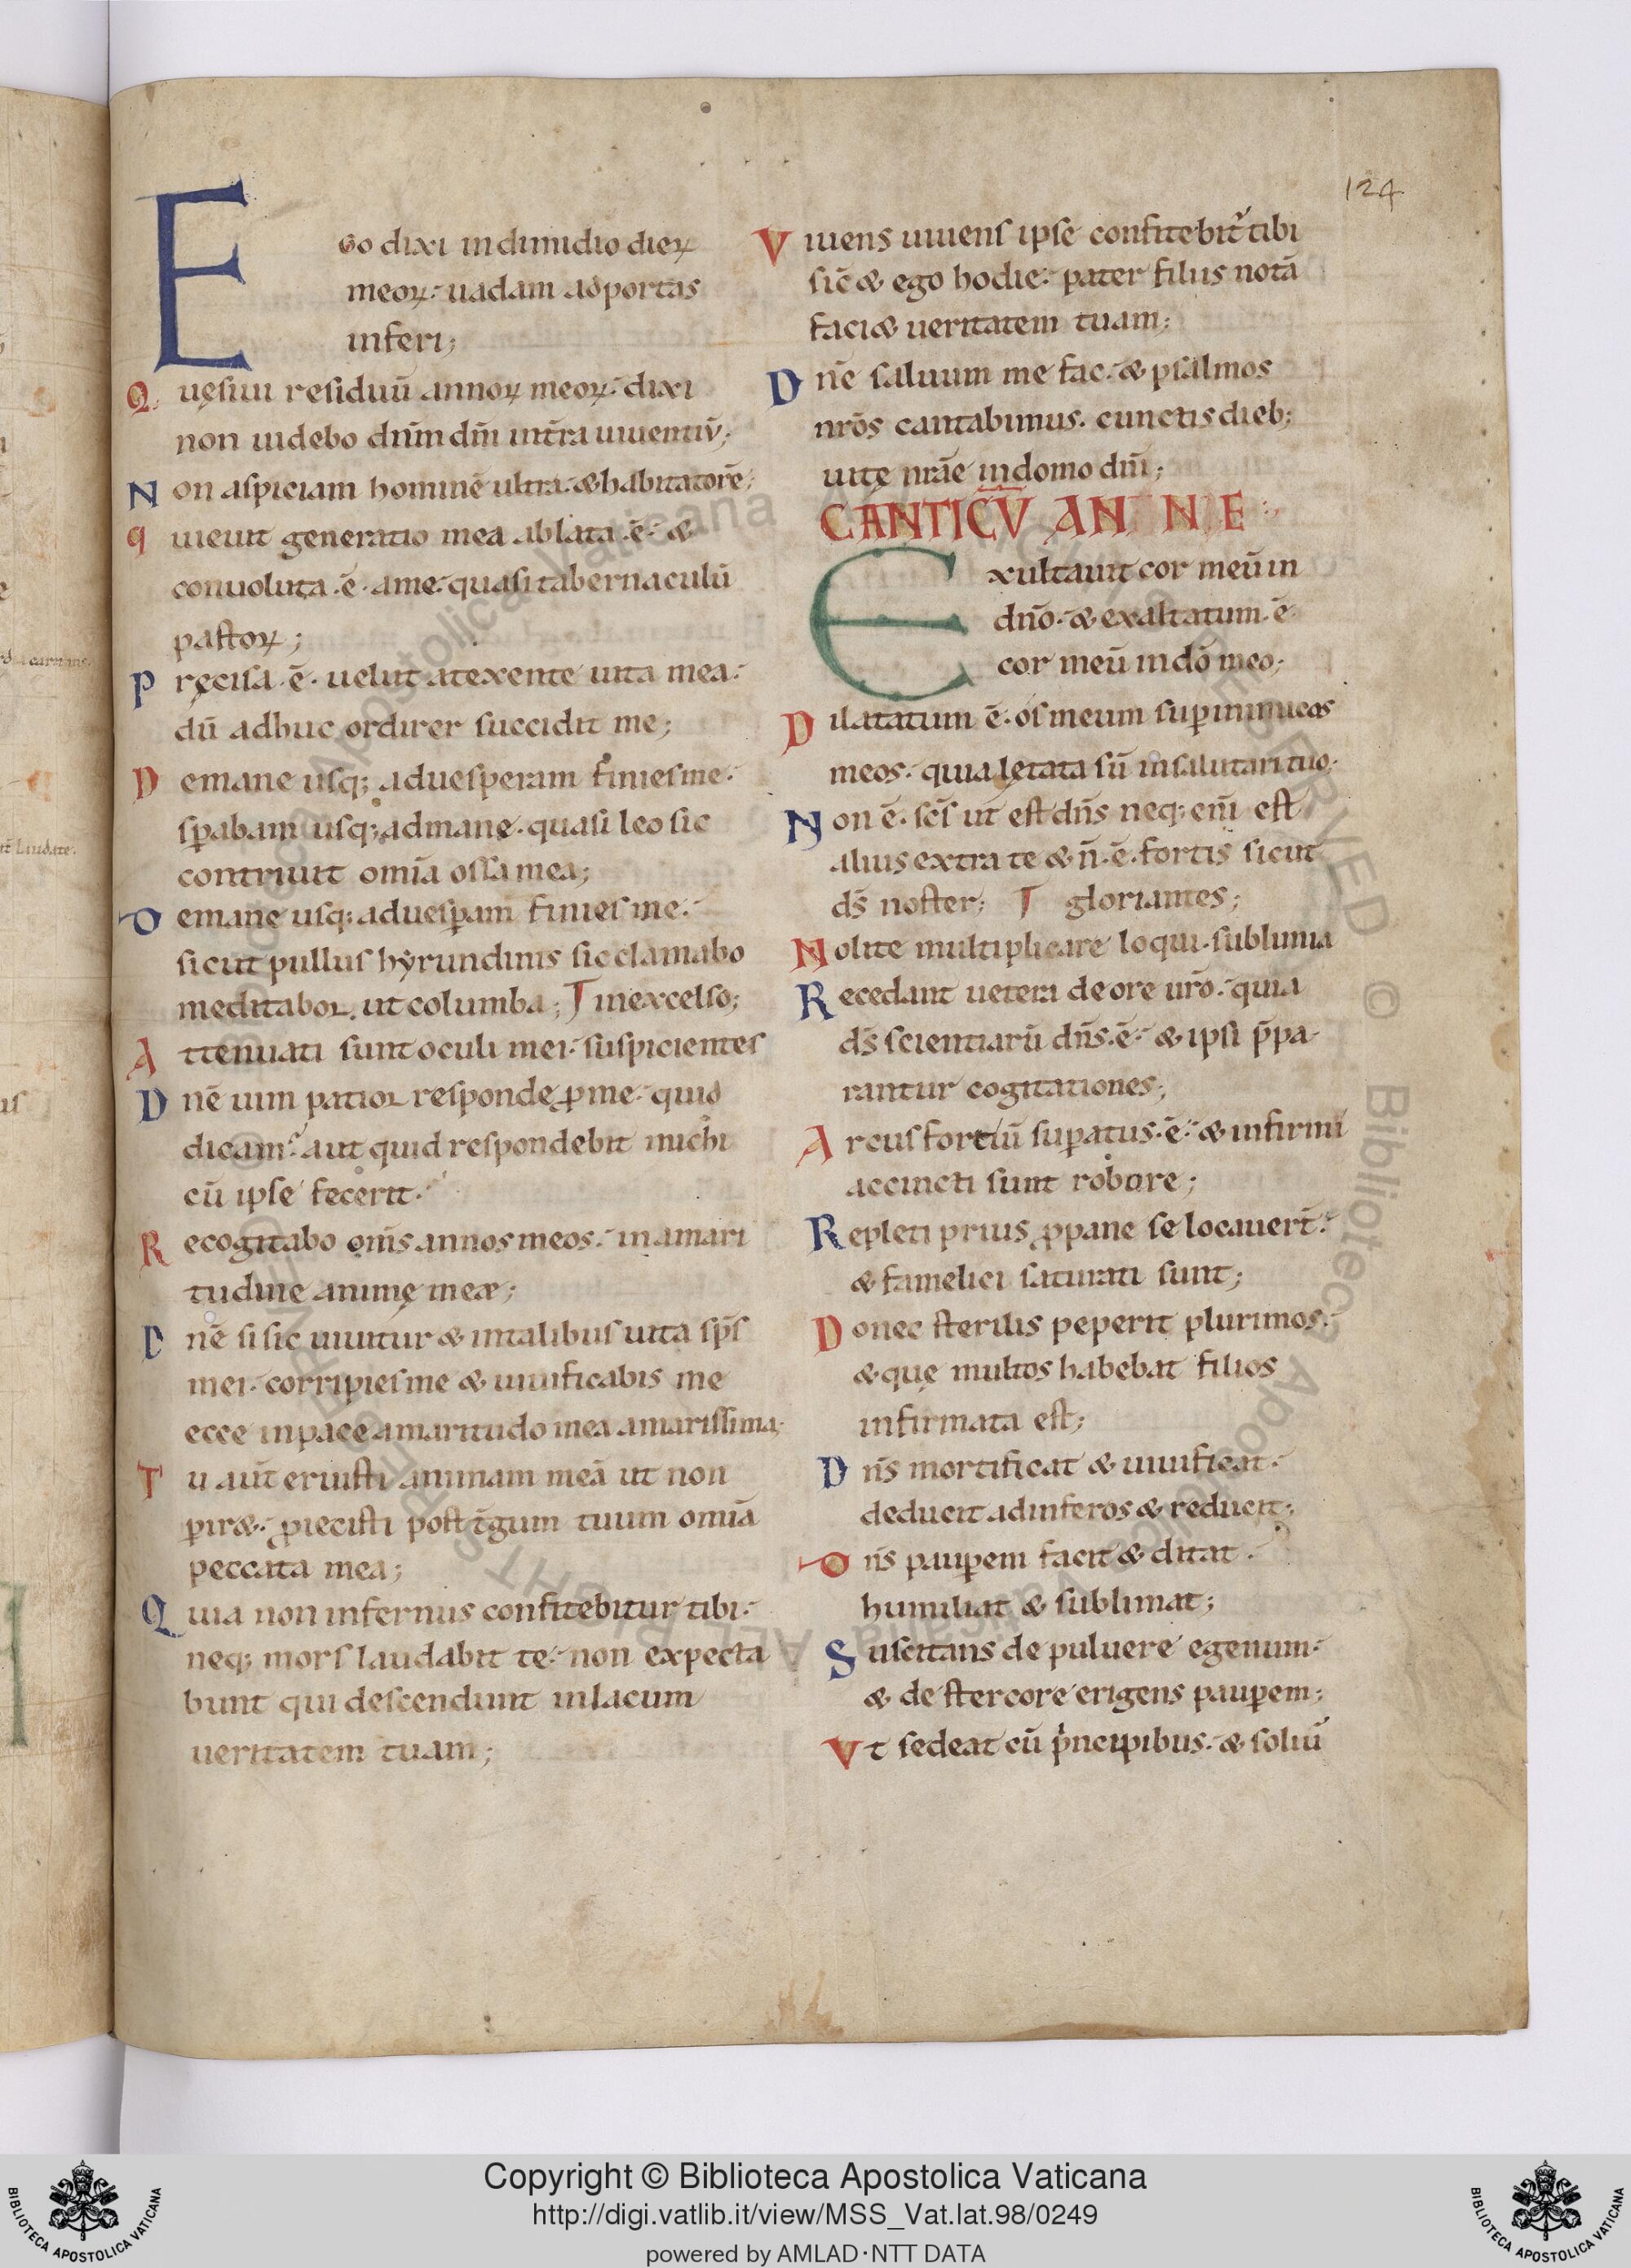 124
Ego dixi in dimidio dieꝝ
meoꝝ: uadam ad portas
inferi;
Quęsiui residuū annoꝝ meoꝝ: dixi
non uidebo dn̄m dm̄ in tr̄ra uiuentiū;
Non aspiciam hominē ultra: & habitatorē
quieuit generatio mea ablata .ē: &
conuoluta .ē. a me: quasi tabernaculū
pastoꝝ;
Pręcisa .ē. uelut a texente uita mea:
dū adhuc ordirer succidit me;
De mane usq; ad uesperam finies me:
sꝑabam usq; ad mane. quasi leo sic
contriuit omīa ossa mea;
De mane usq; ad uesꝑam finies me:
sicut pullus hyrundinis sic clamabo
meditabor. ut columba; in excelso;
Attenuati sunt oculi mei: suspicientes
Dnē uim patior responde ꝓ me: quid
dicam? aut quid respondebit michi
cū ipse fecerit:
Recogitabo om̄s annos meos: in amari
tudine animę meæ;
Dnē si sic uiuitur & in talibus uita sp̄s
mei: corripies me & uiuificabis me
ecce in pace amaritudo mea amarissima;
Tu aūt eruisti animam meā ut non
ꝑir&: ꝓiecisti post t̄gum tuum omīa
peccata mea;
Quia non infernus confitebitur tibi:
neq; mors laudabit te: non expecta
bunt qui descendunt in lacum
ueritatem tuam;
Viuens uiuens ipse confitebit᷑ tibi
sic̄ & ego hodie: pater filiis notā
faci& ueritatem tuam;
Dnē saluum me fac: & psalmos
nr̄os cantabimus. cunctis dieb;
uitę nr̄ae in domo dn̄i;
CANTICV̄ ANNE
Exultauit cor meū in
dn̄o: & exaltatum .ē
cor meū in dō meo;
Dilatatum ē. os meum suꝑ inimicos
meos: quia lętata sū in salutari tuo;
Non ē. sc̄s ut est dn̄s neq; enī est
alius extra te & n̄ .ē. fortis sicut
ds̄ noster; gloriantes;
Nolite multiplicare loqui. sublimia
Recedant uetera de ore ur̄o: quia
ds̄ scientiarū dn̄s .ē: & ipsi p̄pa-
rantur cogitationes;
Arcus fortiū suꝑatus .ē: & infirmi
accincti sunt robore;
Repleti prius ꝓ pane se locauert̄:
& famelici saturati sunt;
Donec sterilis peperit plurimos:
& quę multos habebat filios
infirmata est;
Dn̄s mortificat & uiuificat:
deducit ad inferos & reducit;
Dn̄s pauꝑem facit & ditat:
humiliat & sublimat;
Suscitans de puluere egenum:
& de stercore erigens pauꝑem;
Vt sedeat cū p̍ncipibus: & soliū
Copyright © Biblioteca Apostolica Vaticana
http://digi.vatlib.it/view/MSS_Vat.lat.98/0249
powered by AMLAD·NTT DATA
BIBLIOTECA APOSTOLICA VATICANA
BIBLIOTECA APOSTOLICA VATICANA